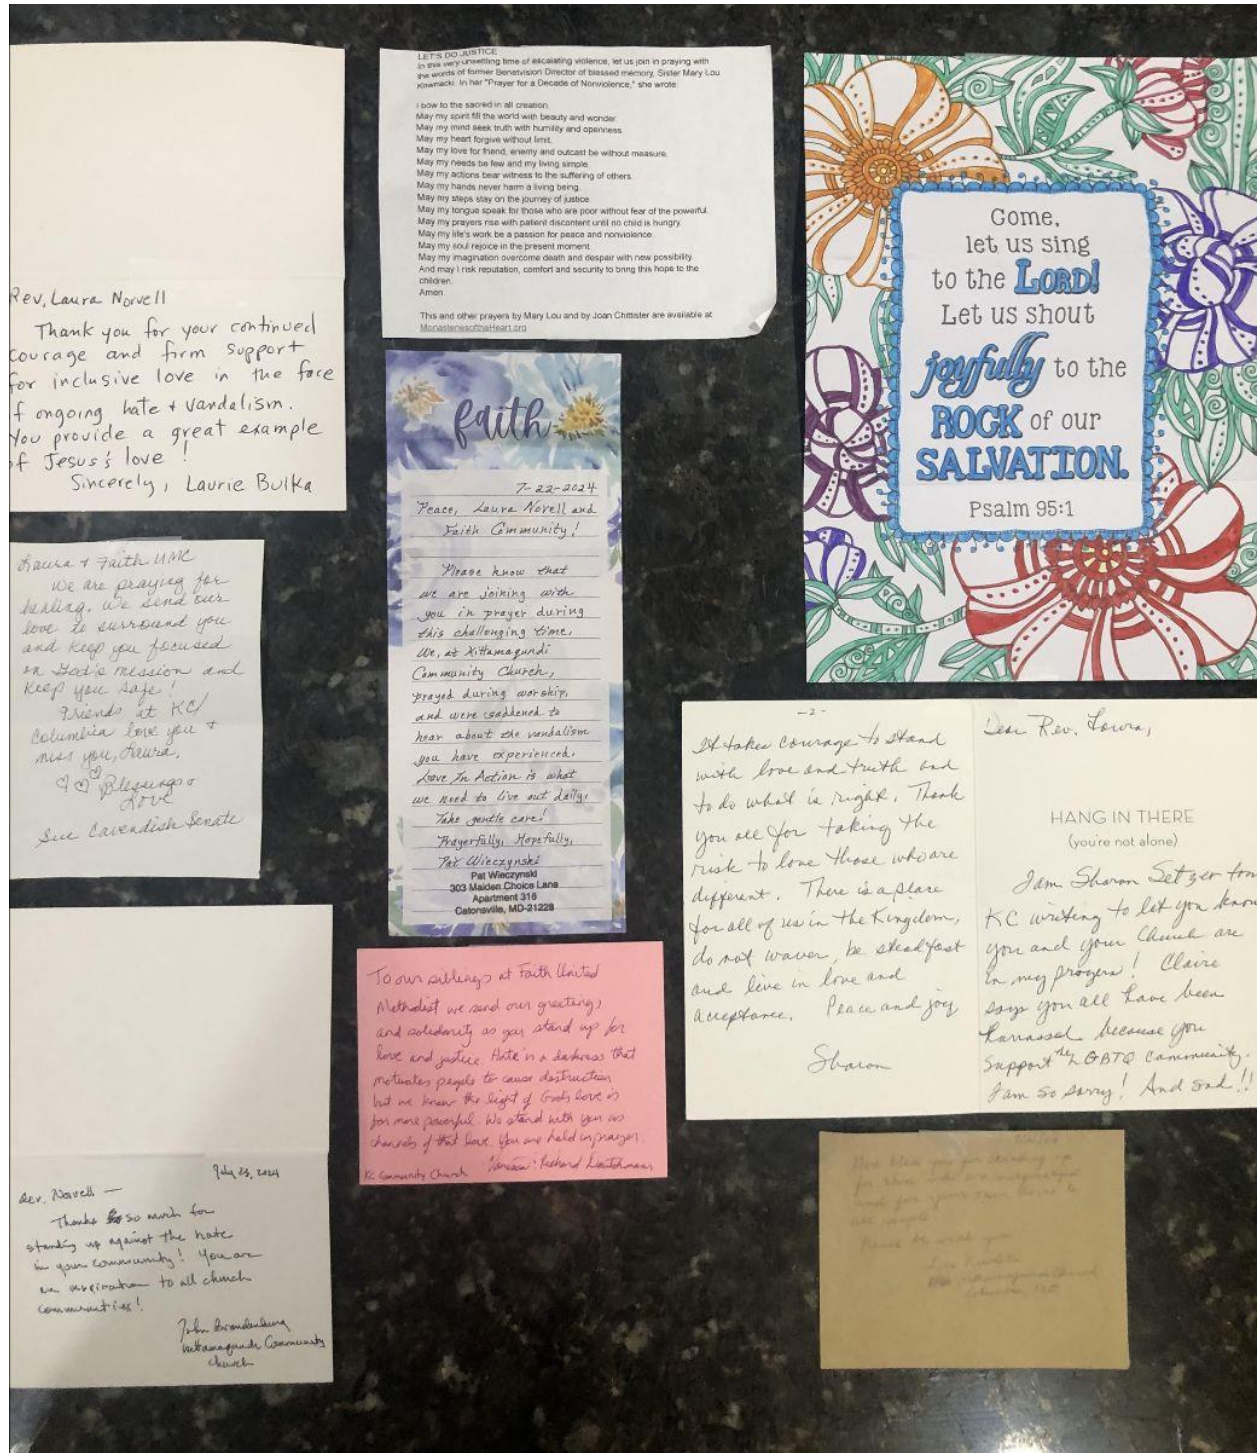 Rev. Laura Norvell
Thank you for your continued
courage and firm support
for inclusive love in the face
of ongoing hate + vandalism.
You provide a great example
of Jesus's love!
Sincerely, Laurie Bulka
Laura + Faith UMC
We are praying for
healing. We send our
love to surround you
and keep you focused
on God's mission and
keep you safe!
Friends at KC/
Columbia love you +
miss you, Laura.
Blessings +
Love
Sue Cavendish Senate
July 23, 2024
Rev. Norvell —
Thanks so much for
standing up against the hate
in your community! You are
an inspiration to all church
communities!
John Brandenburg
Community
church
LET'S DO JUSTICE
In this very unsettling time of escalating violence, let us join in praying with
the words of former Benetvision Director of blessed memory, Sister Mary Lou
Kownacki. In her "Prayer for a Decade of Nonviolence," she wrote:
I bow to the sacred in all creation.
May my spirit fill the world with beauty and wonder.
May my mind seek truth with humility and openness.
May my heart forgive without limit.
May my love for friend, enemy and outcast be without measure.
May my needs be few and my living simple.
May my actions bear witness to the suffering of others.
May my hands never harm a living being.
May my steps stay on the journey of justice.
May my tongue speak for those who are poor without fear of the powerful.
May my prayers rise with patient discontent until no child is hungry.
May my life's work be a passion for peace and nonviolence.
May my soul rejoice in the present moment.
May my imagination overcome death and despair with new possibility.
And may I risk reputation, comfort and security to bring this hope to the
children.
Amen.
This and other prayers by Mary Lou and by Joan Chittister are available at
MonasteriesoftheHeart.org
faith
7-22-2024
Peace, Laura Norell and
Faith Community!
Please know that
we are joining with
you in prayer during
this challenging time.
We, at Kittamagundi
Community Church,
prayed during worship,
and were saddened to
hear about the vandalism
you have experienced.
Love In Action is what
we need to live out daily.
Take gentle care!
Prayerfully, Hopefully,
Pat Wieczynski
Pat Wieczynski
303 Maiden Choice Lane
Apartment 316
Catonsville, MD-21228
To our siblings at Faith United
Methodist we send our greetings
and solidarity as you stand up for
love and justice. Hate is a darkness that
motivates people to cause destruction
but we know the light of God's love is
far more powerful. We stand with you as
channels of that love. You are held in prayer.
KC Community Church
Richard
Come,
let us sing
to the LORD!
Let us shout
joyfully to the
ROCK of our
SALVATION.
Psalm 95:1
Dear Rev. Lowra,
HANG IN THERE
(you're not alone)
I am Sharon Setzer from
KC writing to let you know
you and your Church are
in my prayers! Claire
says you all have been
harrassed because you
support the LGBTQ community.
I am so sorry! And sad!!
-2-
It takes courage to stand
with love and truth and
to do what is right. Thank
you all for taking the
risk to love those who are
different. There is a place
for all of us in the Kingdom,
do not waver, be steadfast
and live in love and
acceptance. Peace and joy
Sharon
God bless you for standing up
for those who are marginalized
and for your open doors to
all people